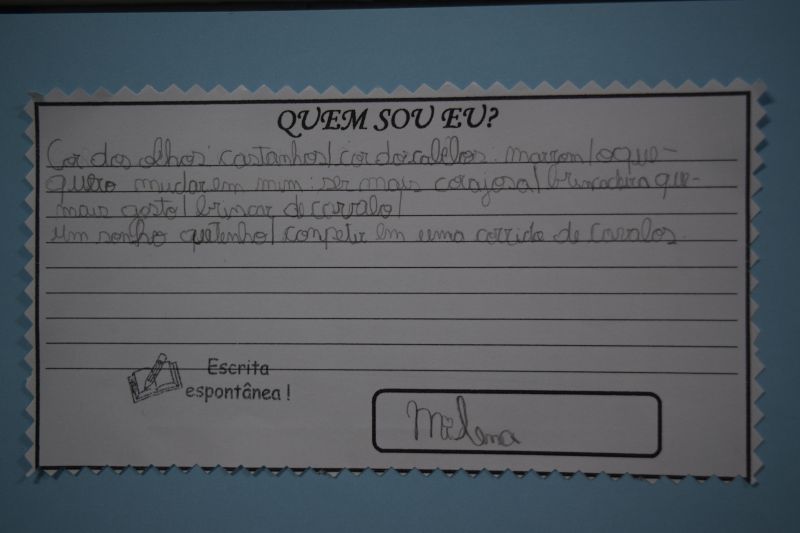 QUEM SOU EU?
Cor dos olhos castanhos/cor dos cabelos: marrom/oque-
quero mudar em mim: ser mais corajosa/brincadeira que-
mais gosto/brincar de cavalo/
um sonho que tenho/conpetir em uma corrida de cavalos.
Escrita
espontânea!
Milena